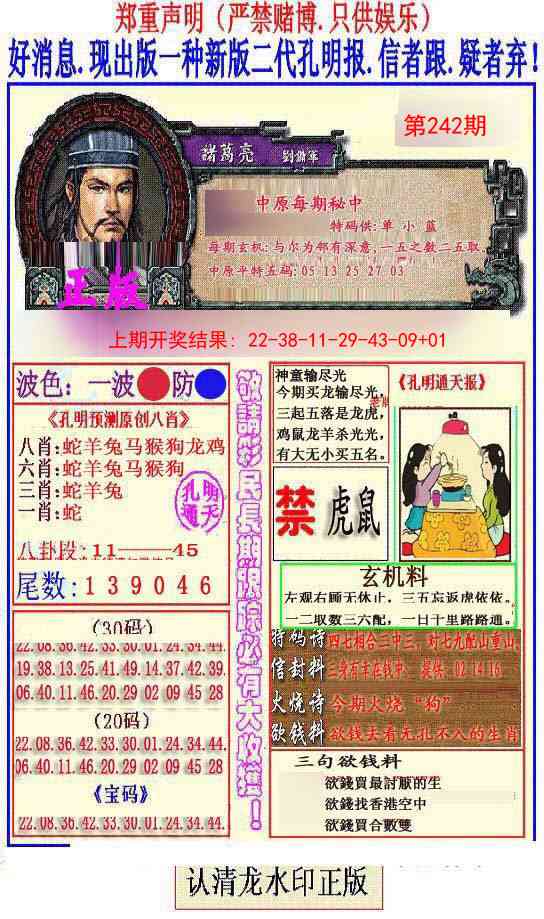 郑重声明（严禁赌博.只供娱乐）
好消息.现出版一种新版二代孔明报.信者跟.疑者弃!
第242期
諸葛亮 劉備軍
中原每期秘中
特码供:单 小 蓝
每期玄机:与尔为邻有深意,一五之数二五取.
中原平特五码:05 13 25 27 03
正版
上期开奖结果: 22-38-11-29-43-09+01
波色: 一波 防
《孔明预测原创八肖》
八肖:蛇羊兔马猴狗龙鸡
六肖:蛇羊兔马猴狗
三肖:蛇羊兔
一肖:蛇
孔明
通天
八卦段:11——45
尾数:139046
(30码)
22.08.36.42.33.30.01.24.34.44.
19.38.13.25.41.49.14.37.42.39.
06.40.11.46.20.29 02 09 45 28
(20码)
22.08.36.42.33.30.01.24.34.44.
06.40.11.46.20.29 02 09 45 28
《宝码》
22.08.36.42.33.30.01.24.34.44.
敬請彩民長期跟踪必有大收獲！
神童输尽光
今期买龙输尽光,
三起五落是龙虎,
鸡鼠龙羊杀光光,
有大无小买五名。
《孔明通天报》
禁 虎鼠
玄机料
左观右顾无休止, 三五忘返虎依依。
一二取数三六配, 一日十里路路通。
特码诗 四七相合三中三, 对七九配山重山
信封料 三身有主在钱中, 提供: 02.14.16
火烧诗 今期火烧“狗”
欲钱料 欲钱去看无孔不入的生肖
三句欲钱料
欲錢買最討厭的生
欲錢找香港空中
欲錢買合數雙
认清龙水印正版